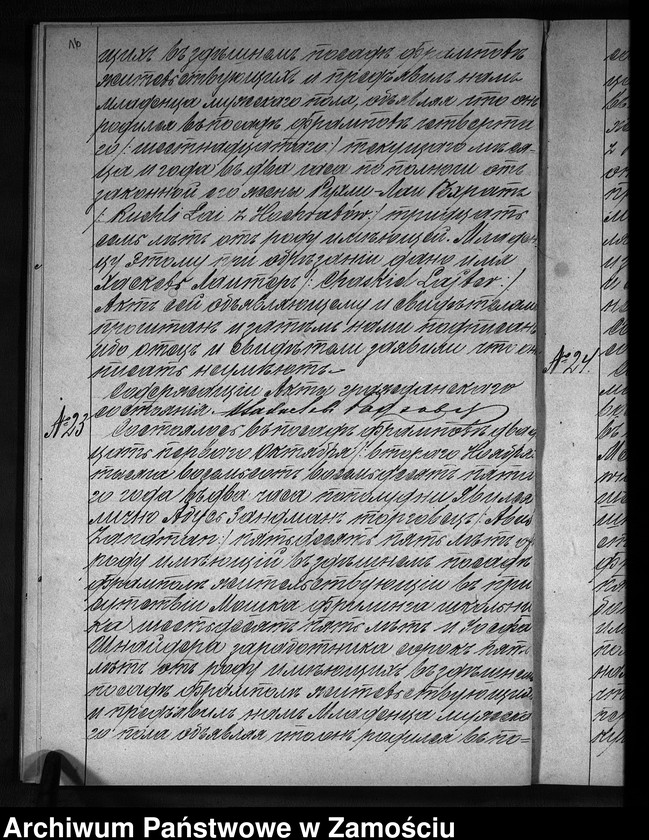 16
щихъ въ здѣшнемъ посадѣ Фрамполѣ
жительствующихъ и предъявилъ намъ
младенца мужескаго пола, объявляя что онъ
родился въ посадѣ Фрамполѣ четверта
го /: шестнадцатаго :/ текущаго мѣся-
ца и года въ два часа по полночи отъ
законной его жены Рухли-Лаи Вахратъ
/: Ruchli Lai z :/ тридцать
семь лѣтъ отъ роду имѣющей. Младен
цу этому при обрѣзаніи дано имя
Хаскель Лайторъ /: Chaskiel Lajbor :/
Актъ сей объявляющему и свидѣтелямъ
прочитанъ и затѣмъ нами подписанъ
ибо отецъ и свидѣтели заявили что он
писать неумѣютъ
Содержащій Акты гражданскаго
состоянія.
№23
Состоялось въ посадѣ Фрамполѣ двад
цать перваго Октября /: втораго Ноября
тысяча восемьсотъ восемьдесятъ пята
го года въ два часа пополудни. Явился
лично Абусъ Зандманъ торговецъ /: Abus
Zandman :/ пятьдесятъ пять лѣтъ от
роду имѣющій въ здѣшнемъ посадѣ
Фрамполѣ жительствующій въ при
сутствіи Мошка Фрилинга школьни
ка шестьдесятъ пять лѣтъ и Іосфа
Шнайдера заработника сорокъ пять
лѣтъ отъ роду имѣющихъ въ здѣшнем
посадѣ Фрамполѣ жительствующихъ
и предъявилъ намъ Младенца мужеска
го пола объявляя что онъ родился въ по=
№24.
Archiwum Państwowe w Zamościu